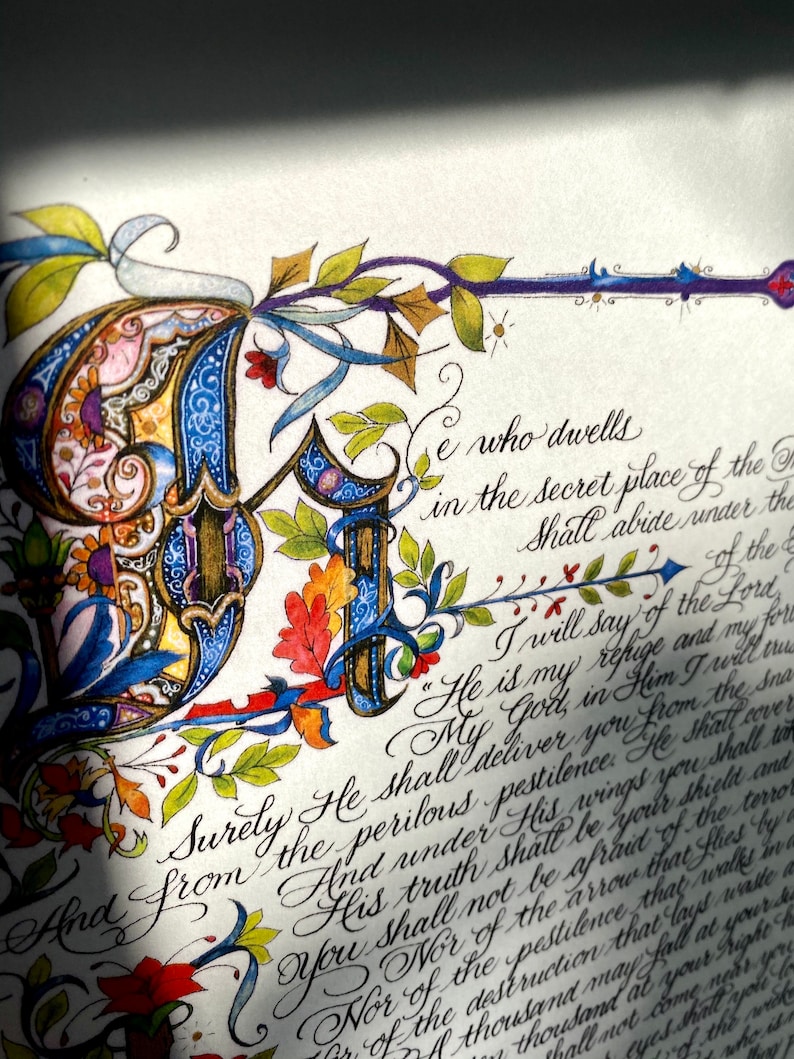 He who dwells
in the secret place of the
Shall abide under the
of the
I will say of the Lord,
"He is my refuge and my
My God, in Him I will
Surely He shall deliver you from the
And from the perilous pestilence. He shall cover
And under His wings you shall
His truth shall be your shield and
You shall not be afraid of the terror
Nor of the arrow that flies by
Nor of the pestilence that walks in
Nor of the destruction that lays waste
A thousand may fall at your
thousand at your right
shall not come near
eyes shall you
of the
who is